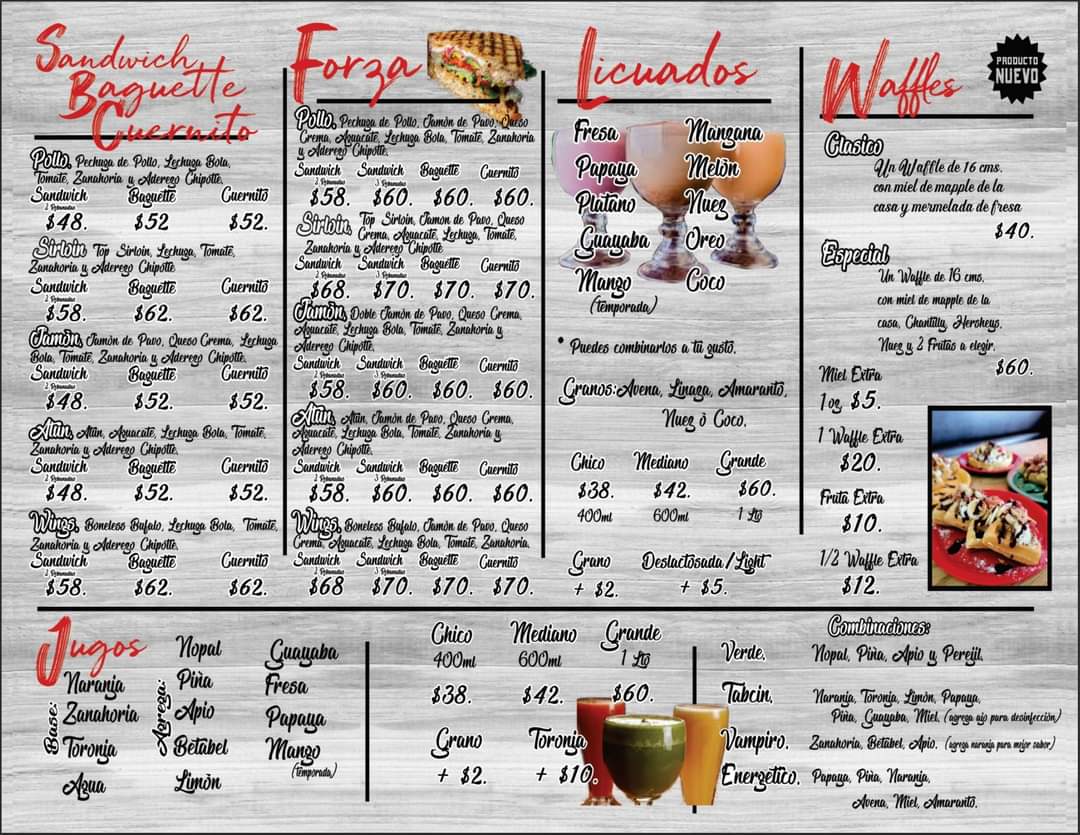 Sandwich
Baguette
Cuernito
Pollo, Pechuga de Pollo, Lechuga Bola,
Tomate, Zanahoria y Aderezo Chipotle.
Sandwich Baguette Cuernito
2 Rebanadas
$48. $52 $52.
Sirloin Top Sirloin, Lechuga, Tomate,
Zanahoria y Aderezo Chipotle
Sandwich Baguette Cuernito
2 Rebanadas
$58. $62. $62.
Jamòn, Jamòn de Pavo, Queso Crema, Lechuga
Bola, Tomate, Zanahoria y Aderezo Chipotle.
Sandwich Baguette Cuernito
2 Rebanadas
$48. $52. $52.
Atùn, Atùn, Aguacate, Lechuga Bola, Tomate,
Zanahoria y Aderezo Chipotle.
Sandwich Baguette Cuernito
2 Rebanadas
$48. $52. $52.
Wings, Boneless Bufalo, Lechuga Bola, Tomate,
Zanahoria y Aderezo Chipotle.
Sandwich Baguette Cuernito
2 Rebanadas
$58. $62. $62.
Forza
Pollo, Pechuga de Pollo, Jamòn de Pavo, Queso
Crema, Aguacate, Lechuga Bola, Tomate, Zanahoria
y Aderezo Chipotle.
Sandwich Sandwich Baguette Cuernito
2 Rebanadas 3 Rebanadas
$58. $60. $60. $60.
Sirloin, Top Sirloin, Jamon de Pavo, Queso
Crema, Aguacate, Lechuga, Tomate,
Zanahoria y Aderezo Chipotle
Sandwich Sandwich Baguette Cuernito
2 Rebanadas 3 Rebanadas
$68. $70. $70. $70.
Jamòn, Doble Jamòn de Pavo, Queso Crema,
Aguacate, Lechuga Bola, Tomate, Zanahoria y
Aderezo Chipotle.
Sandwich Sandwich Baguette Cuernito
2 Rebanadas 3 Rebanadas
$58. $60. $60. $60.
Atùn, Atùn, Jamòn de Pavo, Queso Crema,
Aguacate, Lechuga Bola, Tomate, Zanahoria y
Aderezo Chipotle.
Sandwich Sandwich Baguette Cuernito
2 Rebanadas 3 Rebanadas
$58. $60. $60. $60.
Wings, Boneless Bufalo, Jamòn de Pavo, Queso
Crema, Aguacate, Lechuga Bola, Tomate, Zanahoria.
Sandwich Sandwich Baguette Cuernito
2 Rebanadas 3 Rebanadas
$68 $70. $70. $70.
Licuados
Fresa Manzana
Papaya Melòn
Platano Nuez
Guayaba Oreo
Mango Coco
(temporada)
* Puedes combinarlos a tu gusto.
Granos: Avena, Linaza, Amaranto,
Nuez ò Coco.
Chico Mediano Grande
$38. $42. $60.
400ml 600ml 1 Lto
Grano Deslactosada/Light
+ $2. + $5.
Waffles
PRODUCTO
NUEVO
Clasico
Un Waffle de 16 cms.
con miel de mapple de la
casa y mermelada de fresa
$40.
Especial
Un Waffle de 16 cms.
con miel de mapple de la
casa, Chantilly, Hersheys,
Nuez y 2 Frutas a elegir.
$60.
Miel Extra
1 oz $5.
1 Waffle Extra
$20.
Fruta Extra
$10.
1/2 Waffle Extra
$12.
Jugos
Base:
Naranja
Zanahoria
Toronja
Agua
Agrega:
Nopal
Piña
Apio
Betabel
Limòn
Guayaba
Fresa
Papaya
Mango
(temporada)
Chico Mediano Grande
400ml 600ml 1 Lto
$38. $42. $60.
Grano Toronja
+ $2. + $10.
Combinaciones:
Verde. Nopal, Piña, Apio y Perejil.
Tabcin. Naranja, Toronja, Limòn, Papaya,
Piña, Guayaba, Miel. (agrega ajo para desinfección)
Vampiro. Zanahoria, Betabel, Apio. (agrega naranja para mejor sabor)
Energético. Papaya, Piña, Naranja,
Avena, Miel, Amaranto.